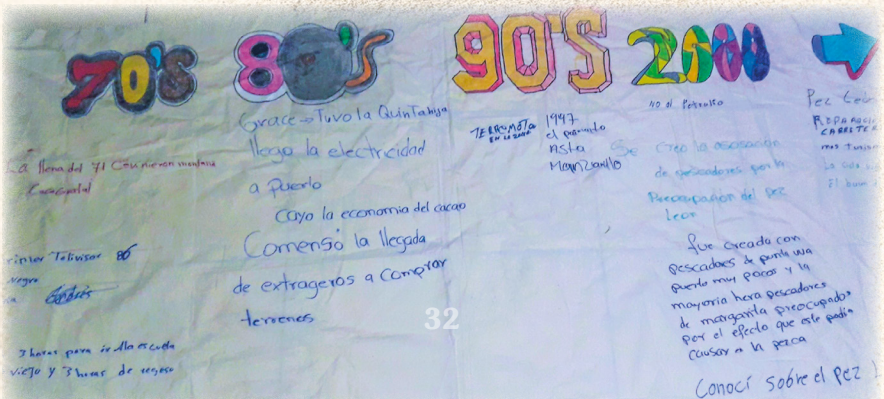 70's
La llena del 71
Primer Televisor 86
Negro
3 horas para ir a la escuela
viejo y 3 horas de regreso
80's
Grace → Tuvo la Quinta hija
llego la electricidad
a Puerto
Cayo la economia del cacao
Comensó la llegada
de extrageros a comprar
terrenos
32
90'S
TERREMOTO
EN LA ZONA
1997
el pavimento
Asta
Manzanillo
2000
no al Petroleo
Se creo la asosacion
de pescadores por la
Preocupacion del pez
Leon
fue creada con
pescadores de punta uva
puerto muy pocos y la
mayoria hera pescadores
de margarita preocupados
por el efecto que este podia
causar a la pezca
Conocí sobre el pez
Pez Leon
REPARACION
CARRETERA
mas turismo